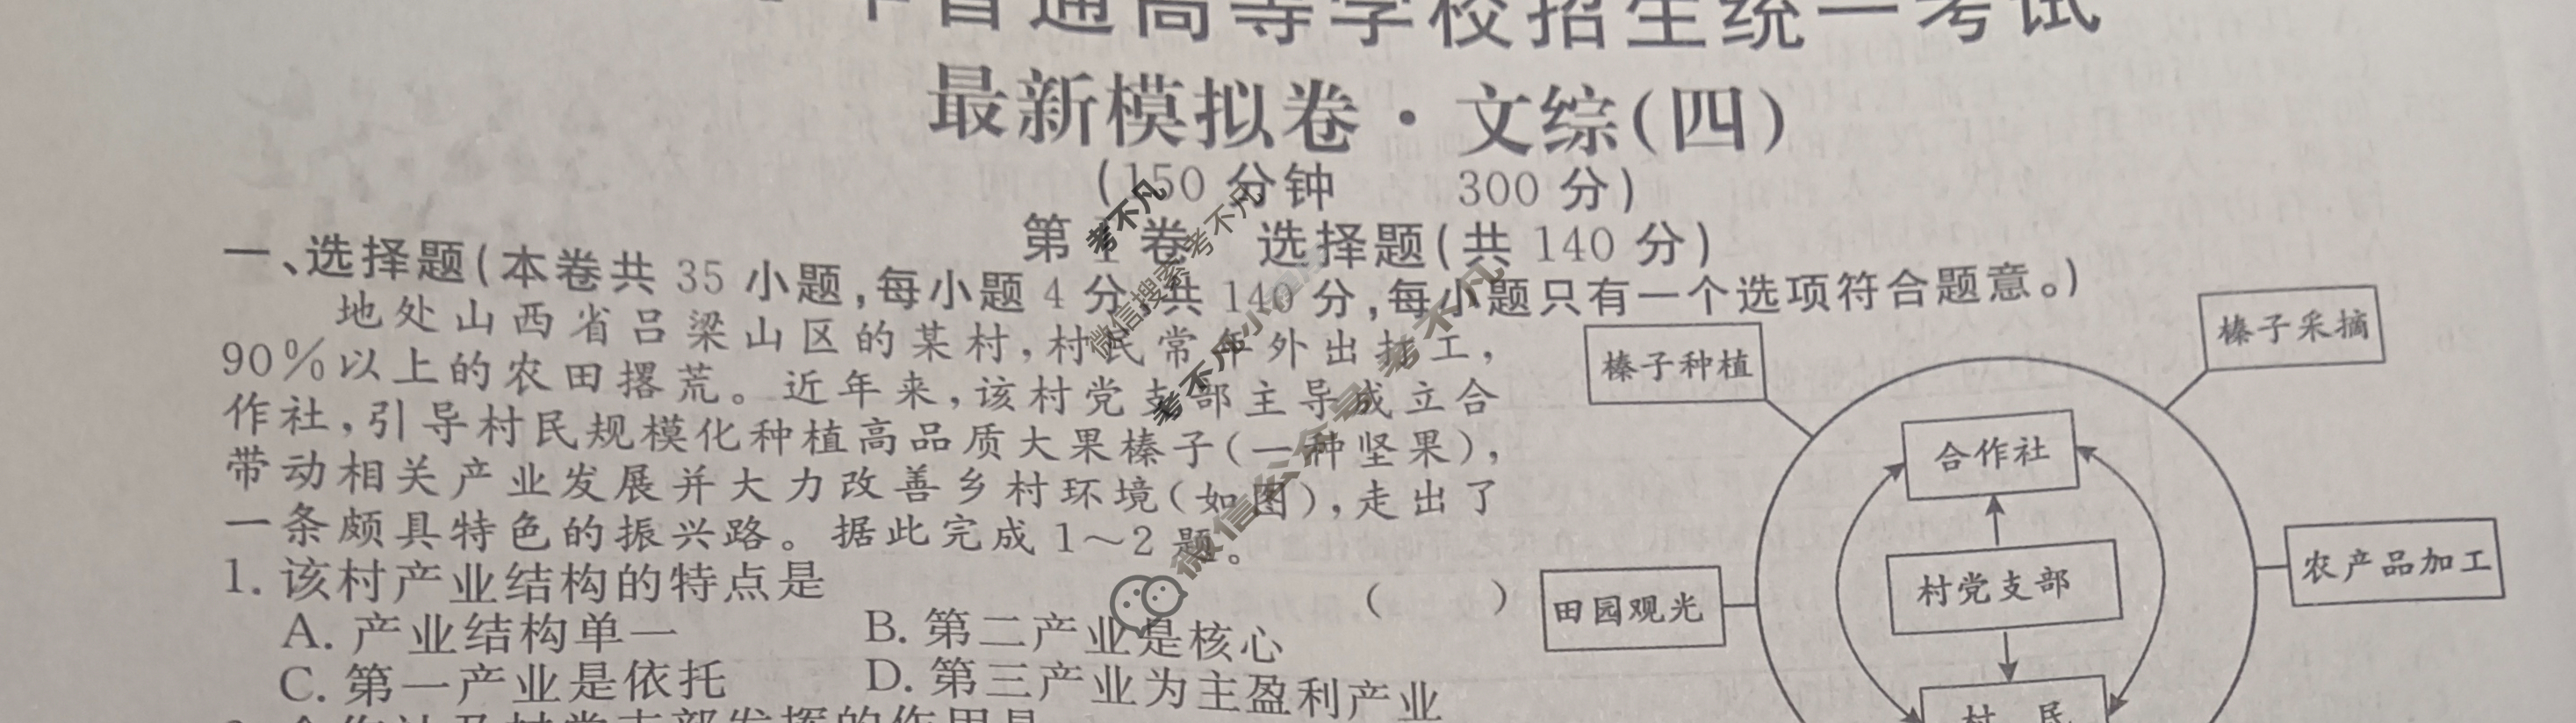 年普通高等学校招生统一考试
最新模拟卷·文综(四)
(150分钟 300分)
第Ⅰ卷 选择题(共140分)
一、选择题(本卷共35小题,每小题4分,共140分,每小题只有一个选项符合题意。)
地处山西省吕梁山区的某村,村民常年外出打工,
90%以上的农田撂荒。近年来,该村党支部主导成立合
作社,引导村民规模化种植高品质大果榛子(一种坚果),
带动相关产业发展并大力改善乡村环境(如图),走出了
一条颇具特色的振兴路。据此完成1~2题。
1. 该村产业结构的特点是 ( )
A. 产业结构单一 B. 第二产业是核心
C. 第一产业是依托 D. 第三产业为主盈利产业
榛子种植
榛子采摘
合作社
村党支部
农产品加工
田园观光
村 民
考不凡
微信搜索 考不凡
微信公众号 考不凡